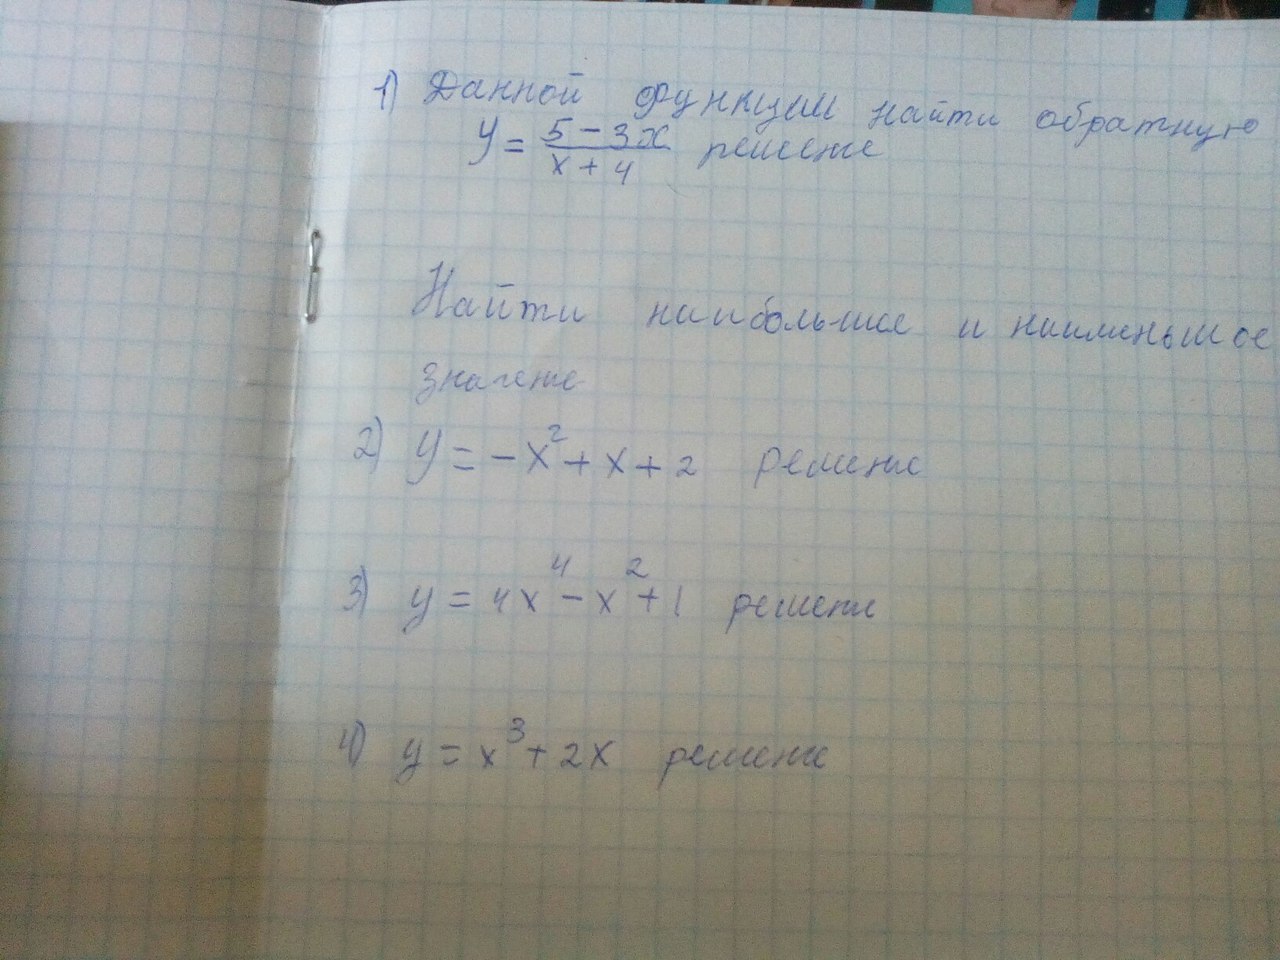 1) Данной функции найти обратную
y = 5 - 3x / x + 4 решение
Найти наибольшее и наименьшее
значение
2) y = -x² + x + 2 решение
3) y = 4x⁴ - x² + 1 решение
4) y = x³ + 2x решение